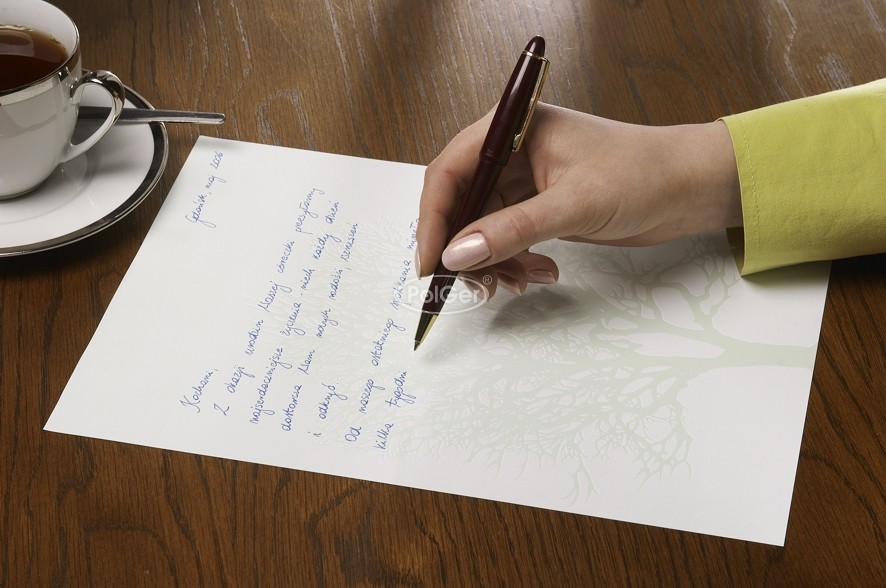 Gdańsk, maj 2006
Kochani,
Z okazji urodzin Waszej córeczki przesyłamy
najserdeczniejsze życzenia. niech każdy dzień
dostarcza Wam nowych radości, wzruszeń
i odkryć.
Od naszego ostatniego spotkania minęło
kilka tygodni
PolGer®